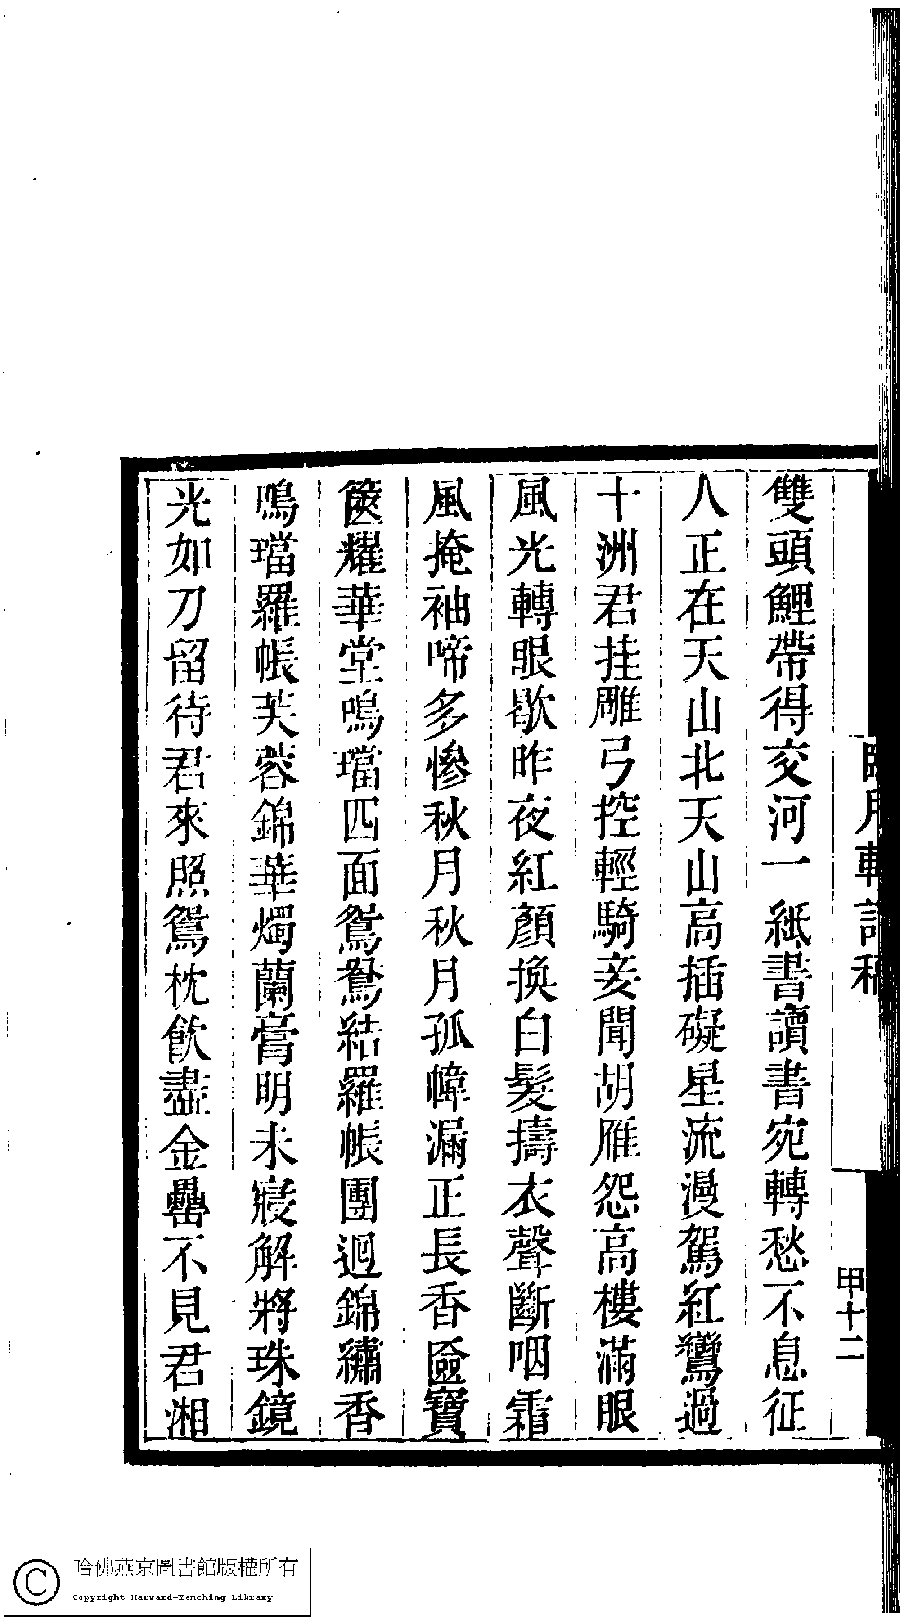 雙頭鯉帶得交河一紙書讀書宛轉愁不息征
人正在天山北天山高插礙星流漫駕紅鸞過
十洲君挂雕弓控輕騎妾聞胡雁怨高樓滿眼
風光轉眼歇昨夜紅顏換白髮擣衣聲斷咽霜
風掩袖啼多慘秋月秋月孤幃漏正長香匳寶
篋耀華堂鳴璫四面鴛鴦結羅帳團迴錦繡香
鳴璫羅帳芙蓉錦華燭蘭膏明未寢解將珠鏡
光如刀留待君來照鴛枕飲盡金罍不見君湘
甲十二
哈佛燕京圖書館版權所有
Copyright Harvard-Yenching Library